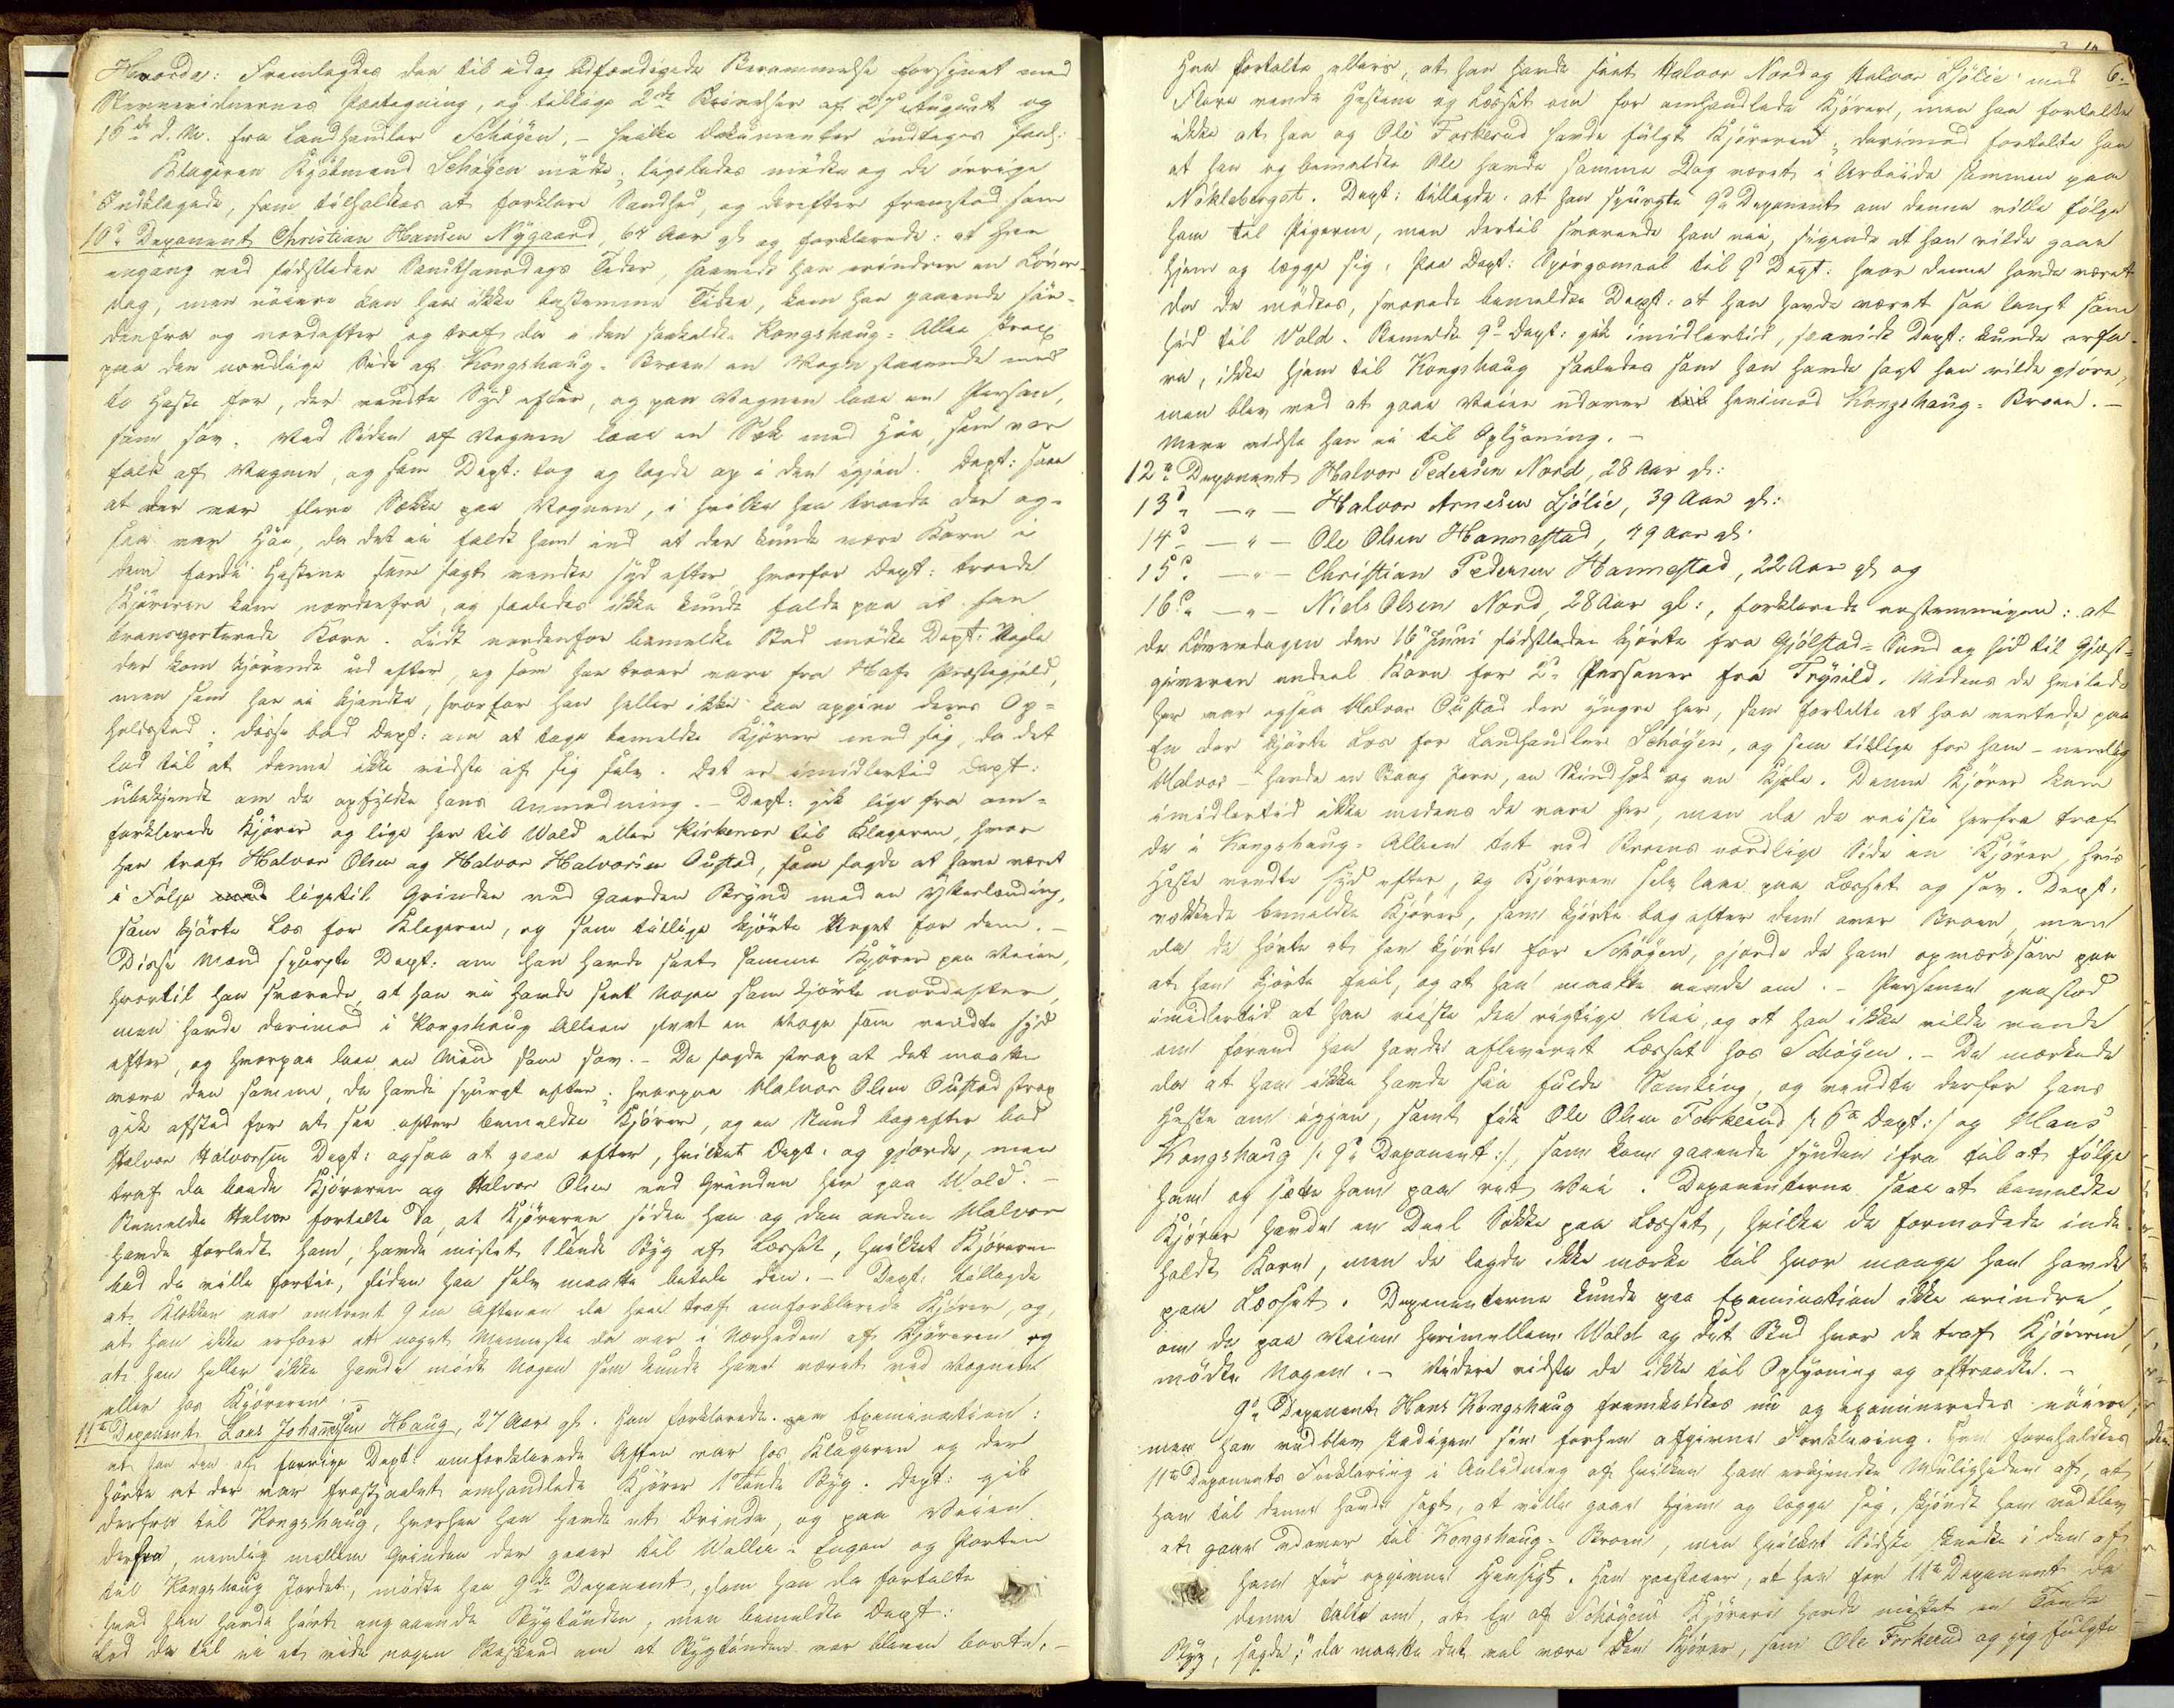 Hvorda: Fremlagdes den til idag udfærdigede Berammelse forsynet med
Stevnevidnernes Paategning, og tillige 2de Skrivelser af 2den August og
16de d. M. fra Landhandler Schøyen, – hvilke Dokumenter indtages
Klageren Kjøbmand Schøyen mødte; ligeledes mødte og de øvrige
Indklagede, som tilholdtes at forklare Sandhed, og derefter fremstod som
10de Deponent Christian Hansen Nygaard, 64 Aar gl og forklarede: at han
engang ved sidstleden Sancthansdags Tider, saavidt han erindrer en Løver-
dag, men nøiere kan han ikke bestemme Tiden, kom han gaaende søn-
denfra og nordefter og traf da i den saakaldte Kongshaug-Allee strax
paa den nordlige Side af Kongshaug-Broen en Vogn staaende med
to Heste for, der vendte Syd efter, og paa Vognen laae en Person,
som sov. Ved Siden af Vognen laae en Sæk med Høe, som var
faldt af Vognen, og som Dept: tog og lagde op i den igjen. Dept: saae
at der var flere Sække paa Vognen, i hvilke han troede der og-
saa var Høe, da det ei faldt ham ind at der kunde være Korn i
dem fordi Hestene som sagt vendte syd efter, hvorfor Dept: troede
Kjøreren kom nordenfra, og saaledes ikke kunde falde paa at han
transporterede Korn. Lidt nordenfor bemeldte Sted mødte Dept: Nogle
der kom kjørende ud efter, og som han troer vare fra Hofs Præstegjeld,
men som han ei kjendte, hvorfor han heller ikke kan opgive deres Op-
holdssted; disse bad Dept: om at tage bemeldte Kjører med sig, da det
lod til at denne ikke vidste af sig selv. Det er imidlertid Dept:
ubekjendt om de opfyldte hans Anmodning. – Dept: gik lige fra om-
forklarede Kjører og lige her til Wold eller Kirkenær til Klageren, hvor
han traf Halvor Olsen og Halvor Halvorsen Oustad, som sagde at have været
i Følge ligetil Grinden ved Gaarden Brynd med en Østerlænding,
som kjørte Læs for Klageren, og som tillige kjørte Noget for dem. –
Disse Mænd spurgte Dept: om han havde seet samme Kjører paa Veien,
hvortil han svarede, at han ei havde seet Nogen som kjørte nordefter,
men havde derimod i Kongshaug Alleen seet en Vogn som vendte syd
efter, og hvorpaa laae en Mand som sov. – De sagde strax at det maatte
være den samme, de havde spurgt efter; hvorpaa Halvor Olsen Oustad strax
gik afsted for at see efter bemeldte Kjører, og en Stund bagefter bad
Halvor Halvorsen Dept: ogsaa at gaae efter, hvilket Dept: og gjorde, men
traf da baade Kjøreren og Halvor Olsen ved Grinden her paa Wold. –
Bemeldte Halvor fortalte da, at Kjøreren siden han og den anden Halvor
havde forladt ham, havde mistet 1 Tønde Byg af Læsset, hvilket Kjøreren
bad de ville fortie, siden han selv maatte betale den. – Dept: tillagde
at Klokken var omtrent 9 om Aftenen da han traf omforklarede Kjører, og
at han ikke erfoer at noget Menneske da var i Nærheden af Kjøreren og
at han heller ikke havde mødt Nogen som kunde have været ved Vognen
eller hos Kjøreren. –
11te Deponent Lars Johannesen Haug, 27 Aar gl. Han forklarede paa Examination:
at han den af forrige Dept: omforklarede Aften var hos Klageren og der
hørte at der var frastjaalet omhandlede Kjører 1 Tønde Byg. Dept: gik
derfra til Kongshaug, hvorhen han havde et Ærinde, og paa Veien
derfra, nemlig mellem Grinden der gaaer til Engen og Porten
til Kongshaug Jordet, mødte han 9de Deponent, som han da fortalte
hvad han havde hørt angaaende Bygtønden, men bemeldte Dept:
lod da til ei at vide nogen Besked om at Bygtønden var bleven borte. –
6.
Han fortalte ellers, at han havde seet Halvor Nord og Halvor Ljølie med
Flere vende Hestene og Læsset om for omhandlede Kjører, men han fortalte
ikke at han og Ole Torkerud havde fulgt Kjøreren; derimod fortalte han
at han og bemeldte Ole havde samme Dag været i Arbeide sammen paa
Nøklebergst. Dept: tillagde: at han spurgte 9de Deponent om denne ville følge
ham til Pigerne, men dertil svarede han nei, sigende at han vilde gaae
hjem og lægge sig. Paa Dept: Spørgsmaal til 9de Dept: hvor denne havde været
da de mødtes, svarede bemeldte Dept: at han havde været saa langt som
hid til Vold. Bemeldte 9de Dept: gik imidlertid, saavidt Dept: kunde erfa-
re, ikke hjem til Kongshaug saaledes som han havde sagt han vilde gjøre,
men blev ved at gaae Veien udover henimod Kongshaug-Broen. –
Mere vidste han ei til Oplysning. –
12te Deponent Halvor Pedersen Nord, 28 Aar gl:
13de – „ – Halvor Arnesen Ljølie, 39 Aar gl:
14de – „ – Ole Olsen Hannestad, 49 Aar gl:
15de – „ – Christian Pedersen Hannestad, 22 Aar gl og
16de – „ – Niels Olsen Nord, 28 Aar gl:, forklarede eenstemmigen: at
de Løverdagen den 16de Juni sidstleden kjørte fra Gjølstad-Sund og hid til Gjæst-
giveren endeel Korn for 2de Personer fra Trysild. Medens de hvilede
her var ogsaa Halvor Oustad den yngre her, som fortalte at han ventede paa
En der kjørte Læs for Landhandler Schøyen, og som tillige for ham – nemlig
Halvor – havde en Stang Jern, en Skindsæk og en Kjole. Denne Kjører kom
imidlertid ikke medens de vare her, men da de reiste herfra traf
de i Kongshaug-Alleen tæt ved Broens nordlige Side en Kjører, hvis
Heste vendte syd efter, og Kjøreren selv laae paa Læsset og sov. Dept:
vækkede bemeldte Kjører, som kjørte bag efter dem over Broen, men
da de hørte at han kjørte for Schøyen, gjorde de ham opmærksom paa
at han kjørte feil, og at han maatte vende om. – Personen paastod
imidlertid at han reiste den rigtige Vei, og at han ikke vilde vende
om førend han havde afleveret Læsset hos Schøyen. – De mærkede
da at han ikke havde sin fulde Samling, og vendte derfor hans
Heste om iggjen, samt fik Ole Olsen Torkerud /: 6te Dept: / og Hans
Kongshaug /: 9de Deponent :/, som kom gaaende synden ifra til at følge
ham og sætte ham paa ret Vei. Deponenterne saae at bemeldte
Kjører havde en Deel Sække paa Læsset, hvilke de formodede inde-
holdt Korn, men de lagde ikke mærke til hvor mange han havde
paa Læsset. Deponenterne kunde paa Examination ikke erindre,
om de paa Veien herimellem Wold og det Sted hvor de traf Kjøreren,
mødte Nogen. – Videre vidste de ikke til Oplysning og aftraadte. –
9de Deponent Hans Kongshaug fremkaldtes nu og examineredes nøiere,
men han vedblev stadigen sin forhen afgivne Forklaring. Han foreholdtes
11te Deponents Forklaring i Anledning af hvilken han erkjendte Muligheden af, at
han til denne havde sagt, at ville gaae hjem og lægge sig, skjøndt han vedblev
at gaae udover til Kongshaug-Broen, men hvilket Sidste skeedte i den af
ham før opgivne Hensigt. Han paastaaer, at han for 11te Deponent da
denne talte om, at En af Schøyens Kjørere havde mistet en Tønde
Byg, sagde: "da maatte det vel være den Kjører, som Ole Torkerud og jeg fulgte